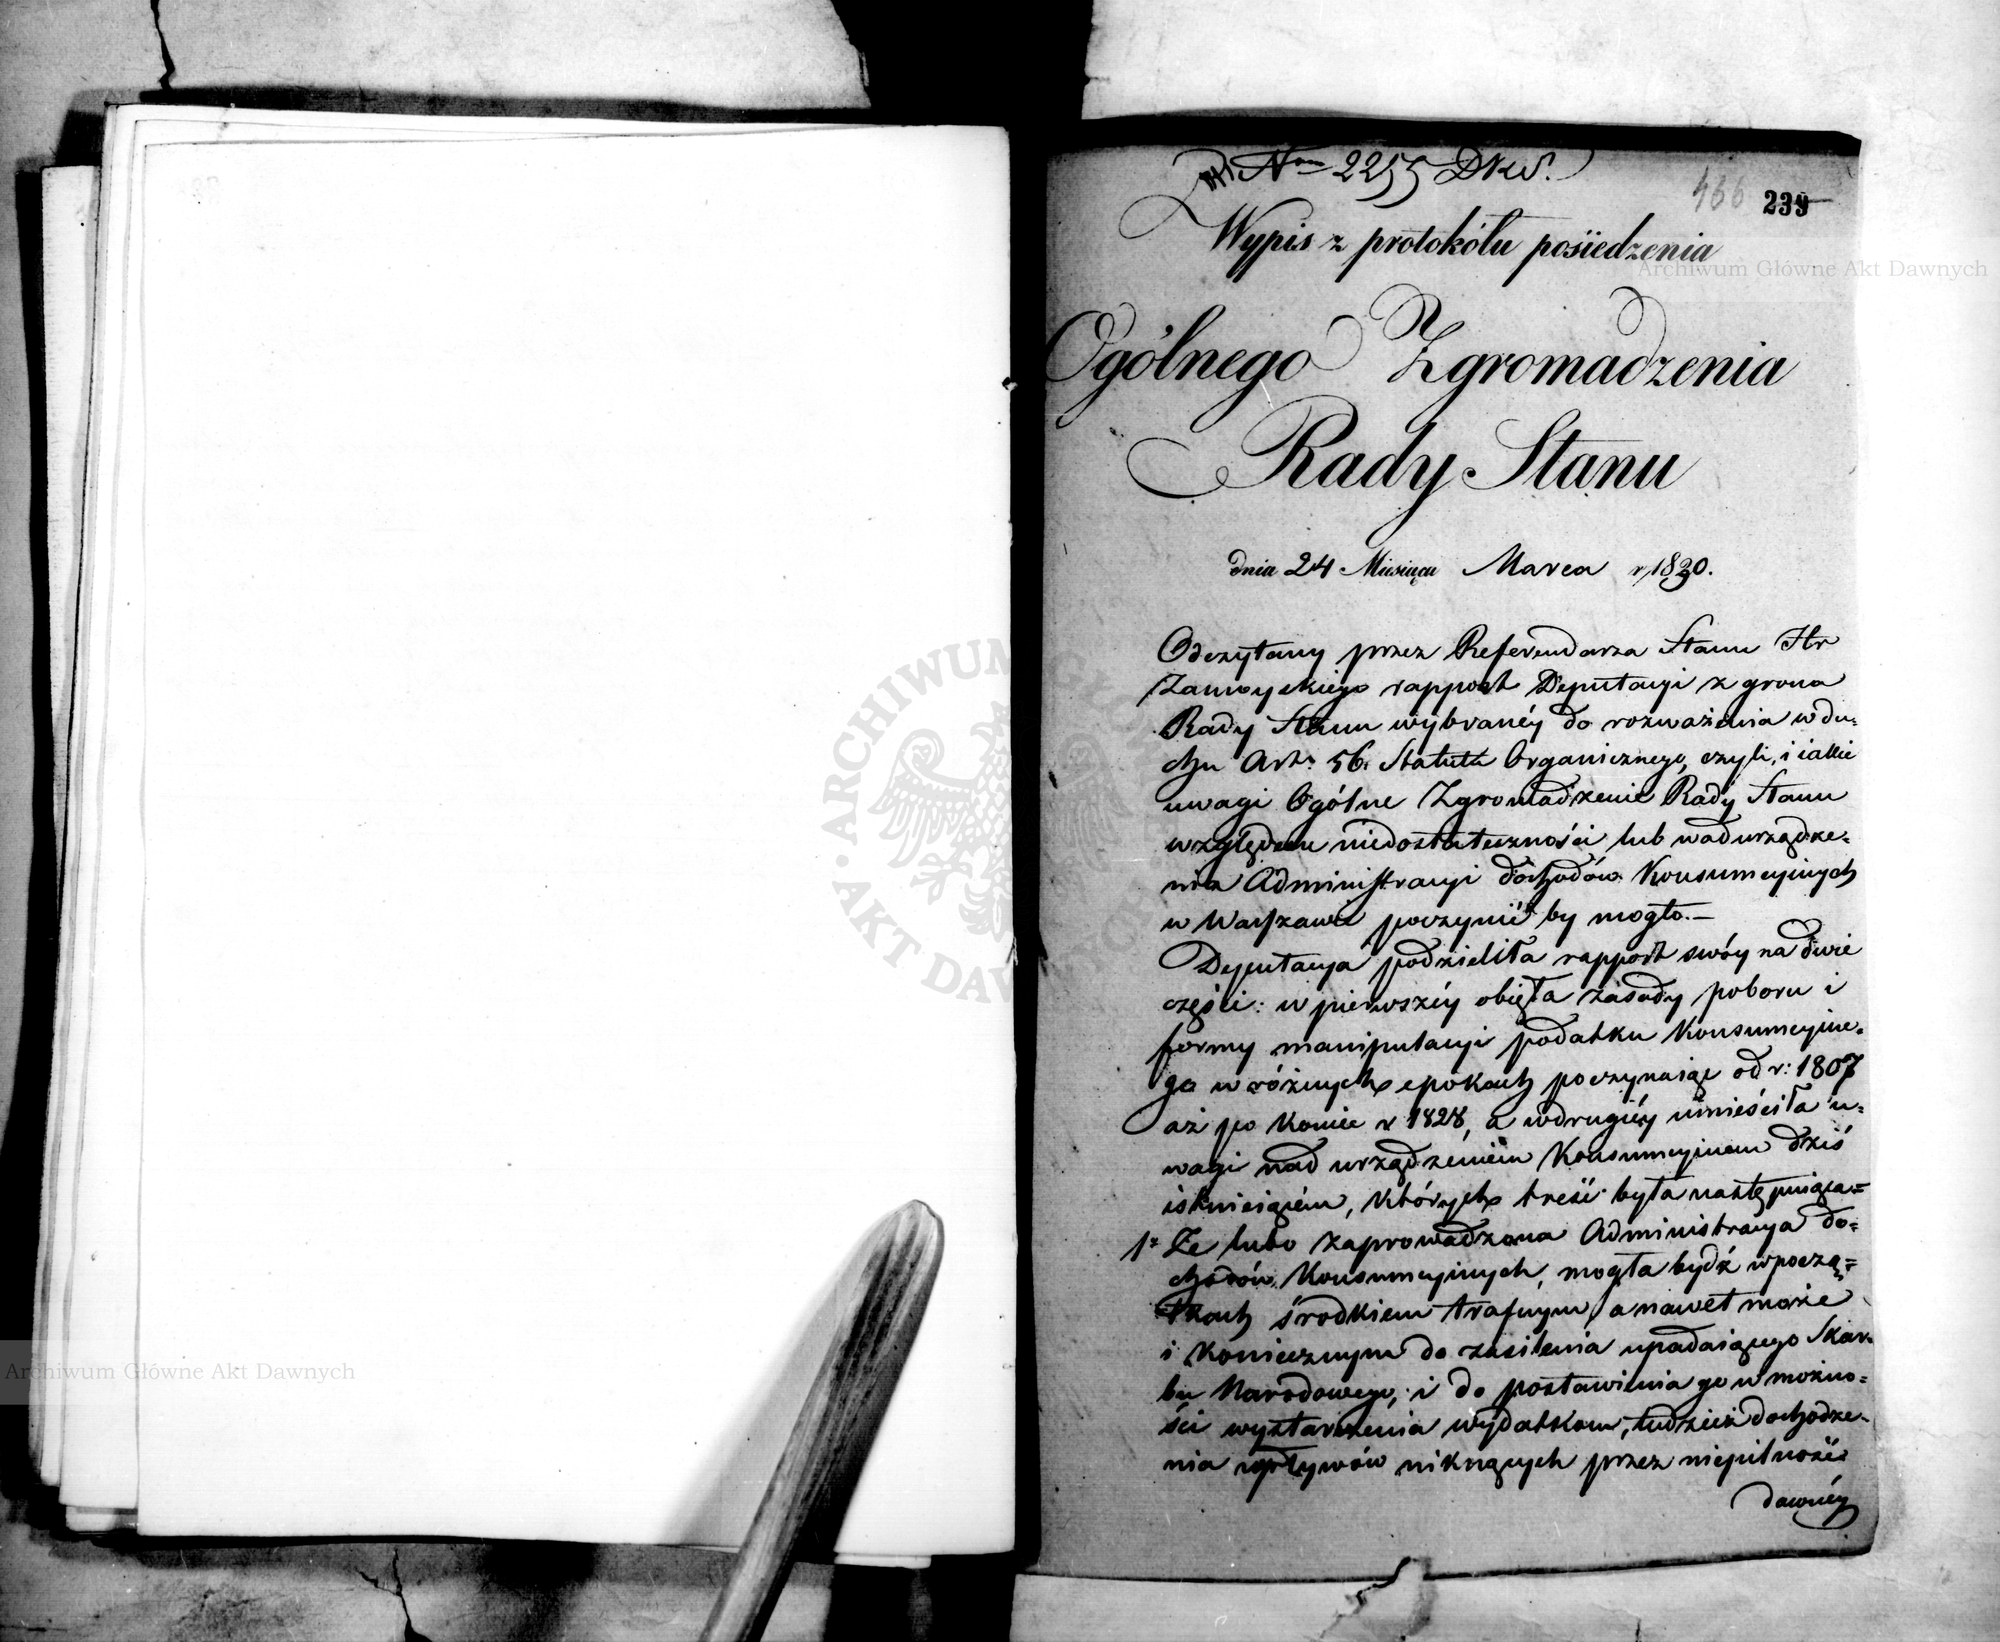 Nro 2255 DKS.
466 239
Wypis z protokółu posiedzenia
Ogólnego Zgromadzenia
Rady Stanu
dnia 24 Miesiąca Marca r. 1830.
Odczytany przez Referendarza Stanu Hr
Zamoyskiego rapport Deputacyi z grona
Rady Stanu wybranéy do rozważenia w du=
chu Art: 56. Statutu Organicznego, czyli, i iakie
uwagi Ogólne Zgromadzenie Rady Stanu
względem niedostateczności lub wad urządze=
nia Administracyi dochodów Konsumcyjnych
w Warszawie poczynić by mogło.—
Deputacya podzieliła rapport swóy na dwie
części: w pierwszéy obięła zasady poboru i
formy manipulacyi podatku Konsumcyjne=
go w różnych epokach poczynaiąc od r: 1807
aż po koniec r 1828, a w drugiéy umieściła u=
wagi nad urządzeniem Konsumcyjnem dziś
istnieiącém, których treść była następuiąca=
1º Że lubo zaprowadzona Administracya do=
chodów Konsumcyjnych, mogła bydź w począ=
tkach środkiem trafnym, a nawet może
i koniecznym do zasilenia upadaiącego Skar=
bu Narodowego, i do postawienia go w możno=
ści wystarczenia wydatkom, tudzież dochodze=
nia wpływów niknących przez niepilność
dawnéy
Archiwum Główne Akt Dawnych
Archiwum Główne Akt Dawnych
ARCHIWUM GŁÓWNE AKT DAWNYCH